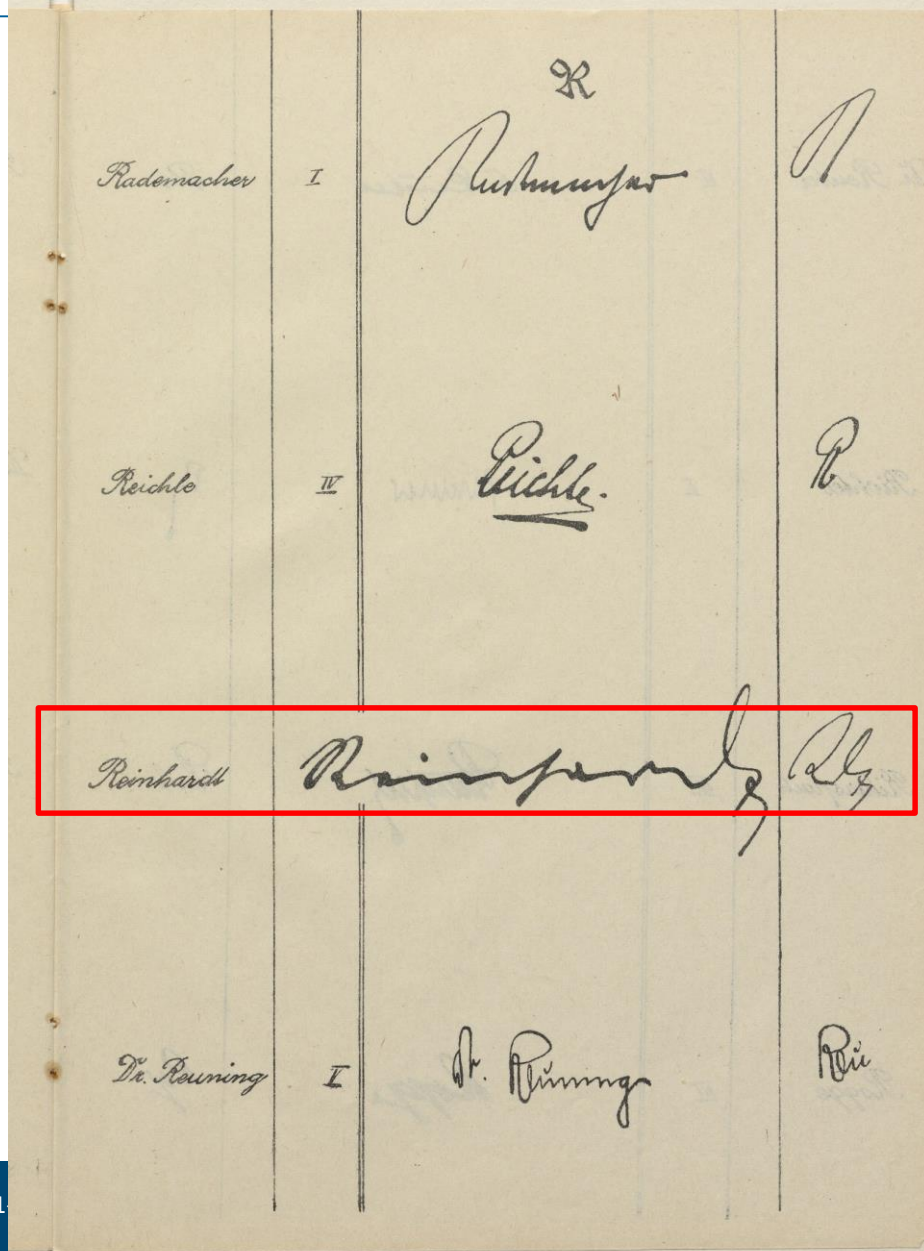 R
Rademacher I Rademacher R
Reichle IV Reichle. R
Reinhardt Reinhardt Rdt
Dr. Reuning V Dr. Reuning Reu